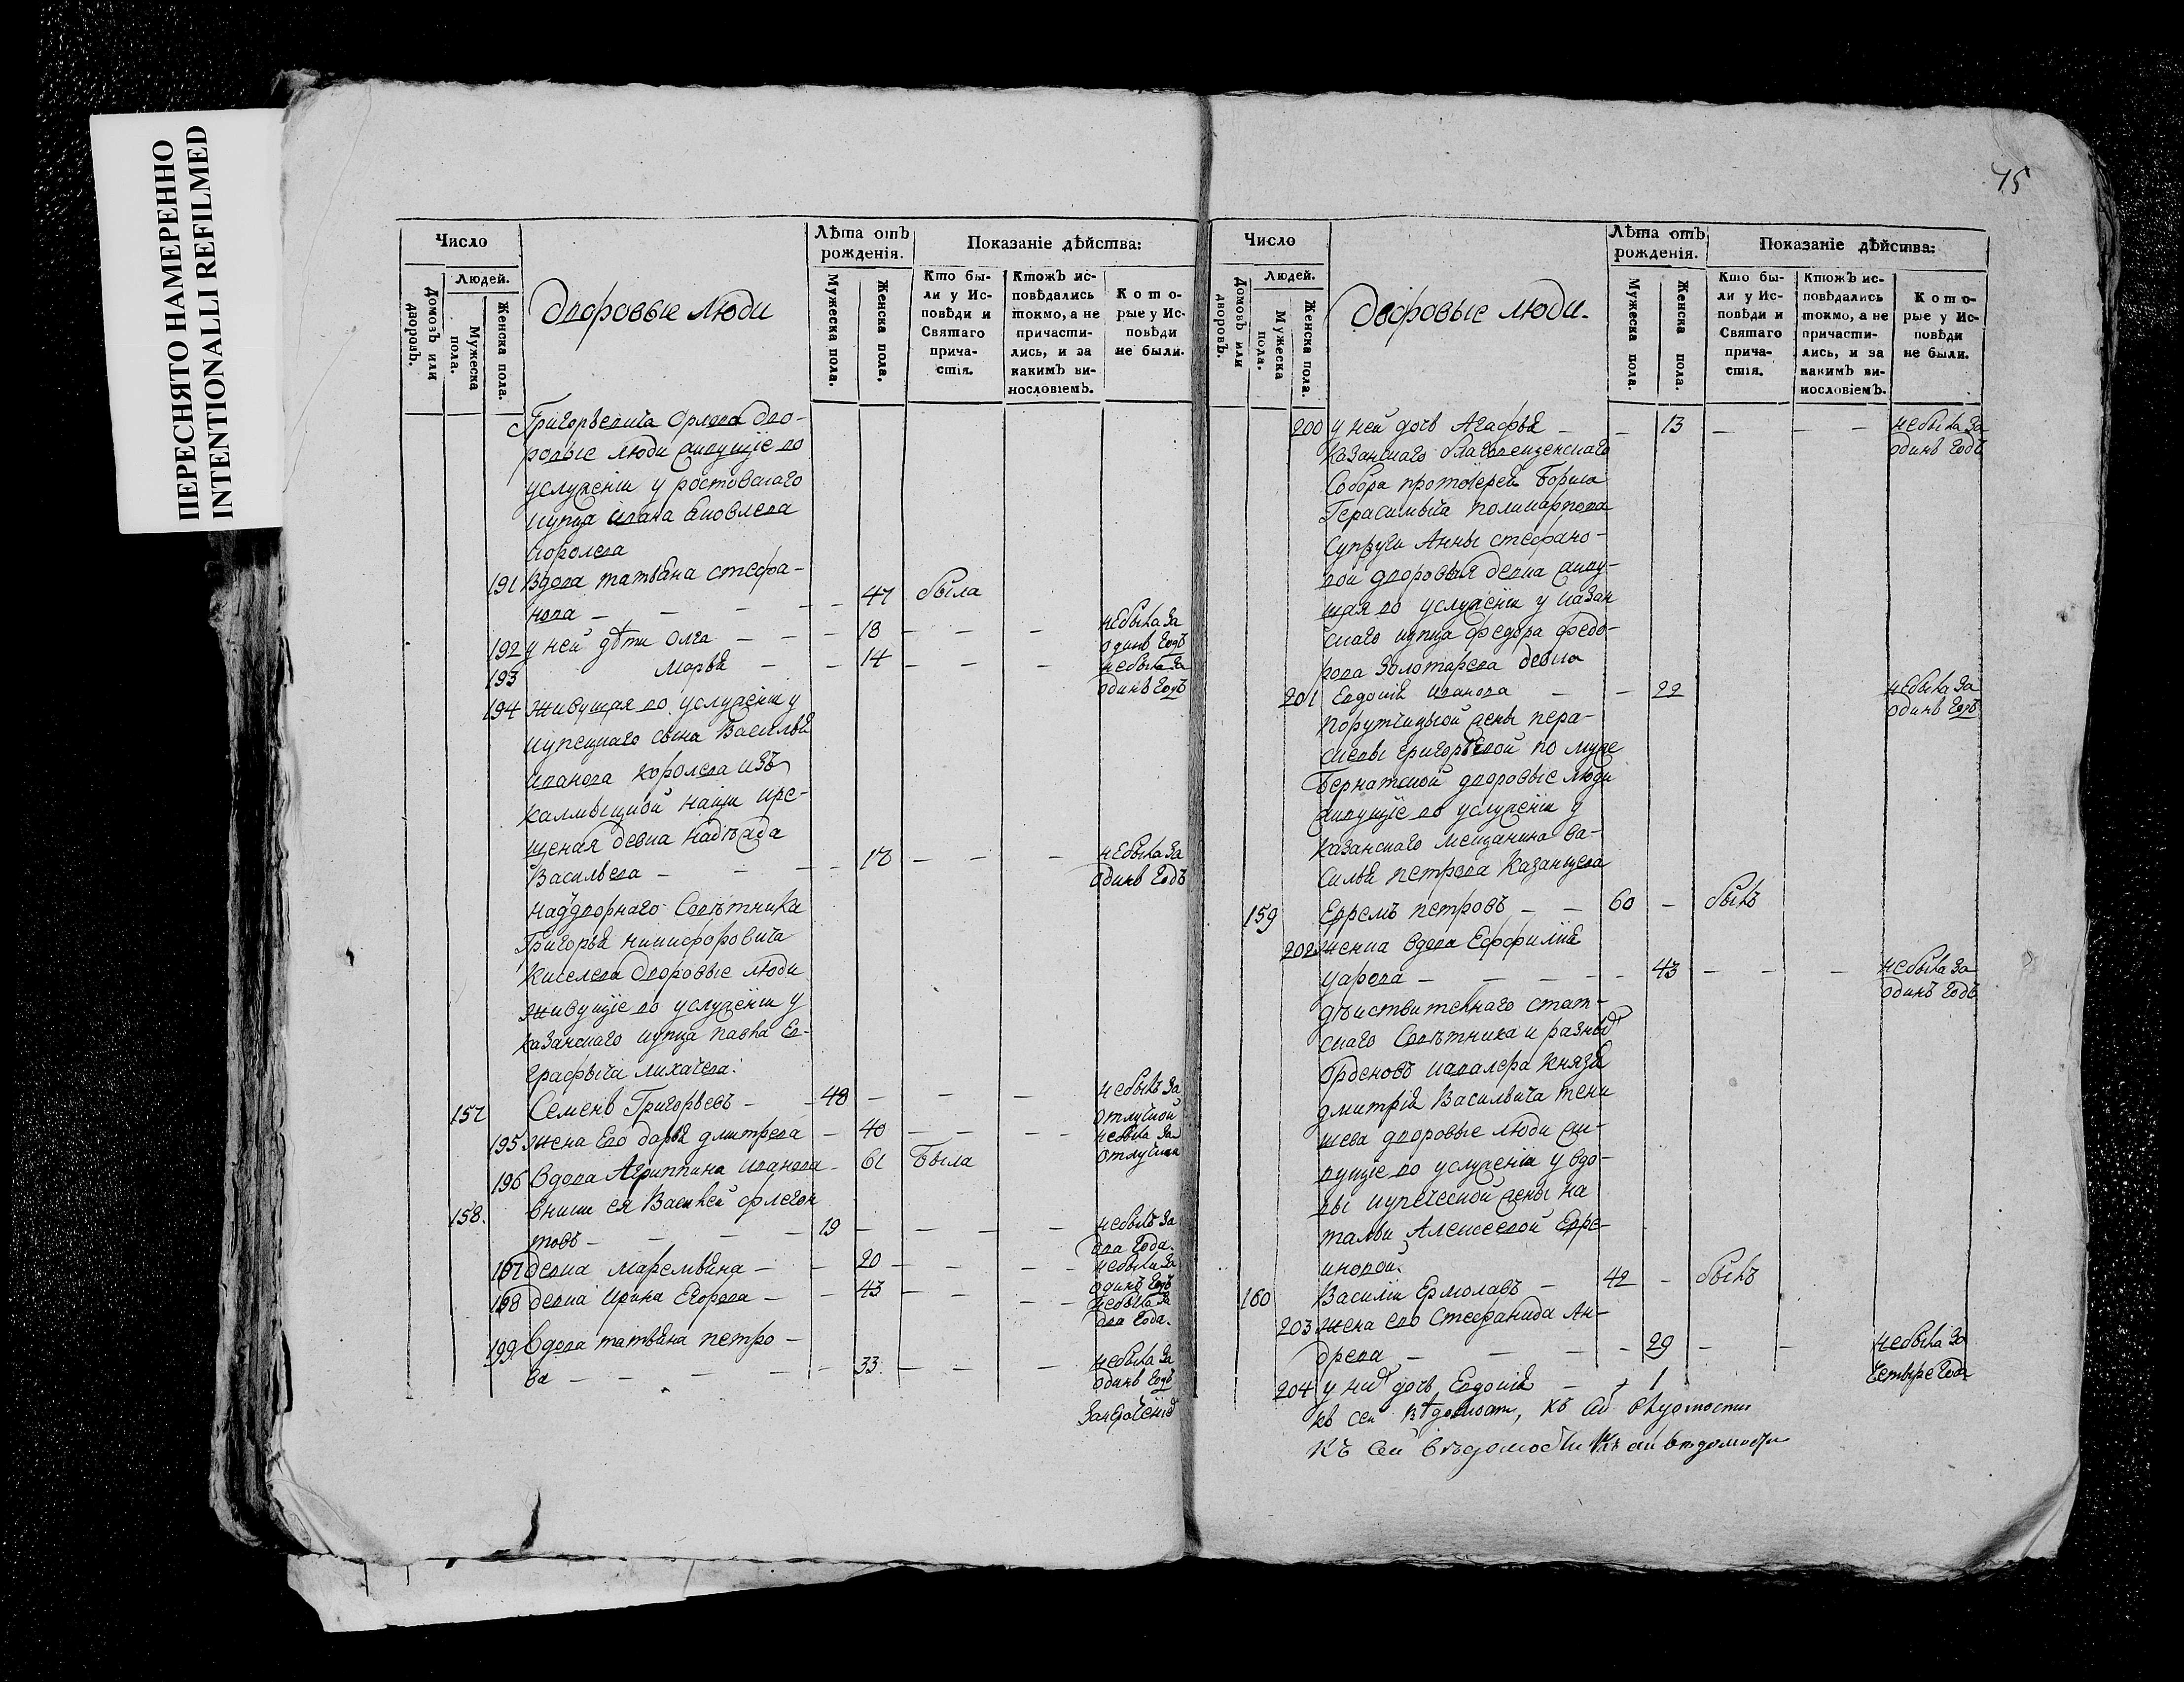 ПЕРЕСНЯТО НАМЕРЕННО
INTENTIONALLI REFILMED
Число
Людей.
Домовъ или дворовъ.
Мужеска пола.
Женска пола.
Дворовые люди
Лѣта отъ рожденія.
Мужеска пола.
Женска пола.
Показаніе дѣйства:
Кто были у Исповѣди и Святаго причастія.
Ктожъ исповѣдались токмо, а не причастились, и за какимъ винословіемъ.
Которые у Исповѣди не были.
Григорьевича Орлова дво-
ровые люди живущіе во
услуженіи у ростовскаго
купца ивана яковлева
королева
191 Вдова татьяна стефа-
нова – – – – – 47 была
192 у ней дѣти олга – – – 18 – – – небыла за одинъ годъ
193 марья – – 14 – – – небыла за одинъ годъ
194 живущая во услуженіи у
купецкаго сына Василья
иванова королева изъ
калмыцкой націи кре-
щеная девка надѣжда
Васильева – – – – 17 – – – небыла за одинъ годъ
надворнаго Совѣтника
Григорья никифоровича
Киселева дворовые люди
живущіе во услуженіи у
казанскаго купца павла Ев-
графыча лихачева.
157 Семенъ Григорьевъ – – 48 – – – небылъ за отлучкой
195 жена Ево дарья дмитрева – 40 – – – – небыла за отлучкой
196 вдова Агриппина иванова – 61 Была
158. внукъ ея Василей флегон
товъ – – – – 19 – – – – небылъ за два года.
197 девка Маремьяна – – 20 – – – – небыла за одинъ годъ
198 девка ирина Егорова – – 43 – – – – небыла за два года.
199 вдова татьяна петро –
ва – – – – – – 33. – – – небыла за одинъ годъ
75
Число
Людей.
Домовъ или дворовъ.
Мужеска пола.
Женска пола.
Дворовые люди.
Лѣта отъ рожденія.
Мужеска пола.
Женска пола.
Показаніе дѣйства:
Кто были у Исповѣди и Святаго причастія.
Ктожъ исповѣдались токмо, а не причастились, и за какимъ винословіемъ.
Которые у Исповѣди не были.
200 у ней дочь Агафья – – 13 – – – небыла за одинъ годъ
казанскаго благовещенскаго
Собора протоіерея Бориса
Герасимыча поликарпова
Супруги Анны стефано-
вой дворовая девка живу-
щая во услуженіи у казан
скаго купца федора федо-
рова Золотарева девка
201 Евдокія иванова – – 22 небыла за одинъ годъ
порутчицкой жены пера-
скевы григорьевой по муже
Бернатской дворовые люди
живущіе во услуженіи у
казанскаго мещанина ва-
силья петрова Казанцева
159 Ефремъ петровъ – – 60 – былъ
202 женка вдова Ефѳимія
уарова – – – – – 43 – – – небыла за одинъ годъ
дѣиствителнаго стат-
скаго Совѣтника и разныхъ
Орденовъ кавалера князя
дмитрія Васильича тени
шева дворовые люди жи-
вущіе во услуженіи у вдо-
вы купеческой жены на
тальи Алексеевой Ефре-
иновой.
160 Василій Ермолаевъ – 42 – былъ
203 жена ево Стефанида Ан-
древа – – – – 29 – – небыла за четыре года
204 у нихъ дочь Евдокія – – 1
къ сей вѣдомости, къ сей вѣдомости
къ сей вѣдомости къ сей вѣдомости